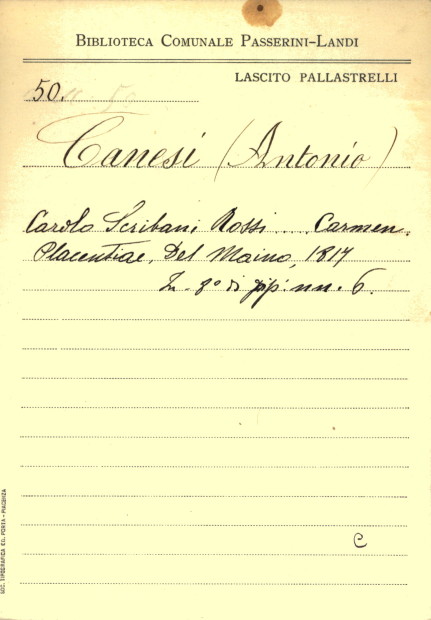 BIBLIOTECA COMUNALE PASSERINI-LANDI
LASCITO PALLASTRELLI
50.
Canesi (Antonio)
Carolo Scribani Rossi .... Carmen.
Placentiae, Del Maino, 1817
In-8° di pp. nn. 6.
C
SOC. TIPOGRAFICA ED. PORTA - PIACENZA